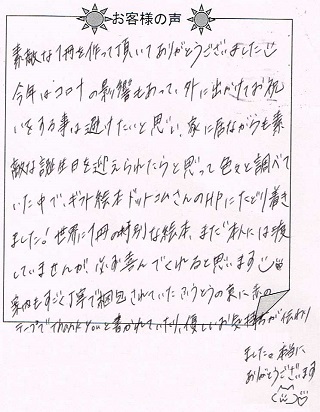 お客様の声
素敵な1冊を作って頂いてありがとうございました
今年はコロナの影響もあって、外に出かけてお祝
いをする事は避けたいと思い、家に居ながらも素
敵な誕生日を迎えられたらと思って色々と調べて
いた中で、ギフト絵本ドットコムさんのHPにたどり着き
ました!世界に1冊の特別な絵本、まだ本人には渡
していませんが、必ず喜んでくれると思います
案内もすごく丁寧で梱包されていたふうとうの裏に赤の
テープでThank youと書かれていたり、優しいお気持ちが伝わり
ました。本当に
ありがとうございます